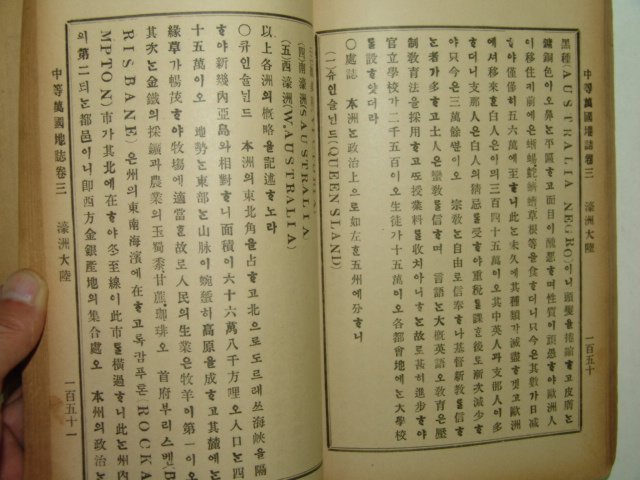 中等萬國地誌卷三 濠洲大陸 一百五十
黑種(AUSTRALIA NEGRO)이니 頭髮을 捲縮ᄒᆞ고 皮膚ᄂᆞᆫ
銅色이오 鼻ᄂᆞᆫ 平匾ᄒᆞ고 面目이 醜惡ᄒᆞ며 性質이 頑愚ᄒᆞ야 歐洲人
이 移住ᄒᆞ기 前에ᄂᆞᆫ 蜥蜴 蛇 蠐螬 草根 等을 食ᄒᆞ더니 只今은 其數가 日減
ᄒᆞ야 僅僅히 五六萬에 至ᄒᆞ니 此ᄂᆞᆫ 未久에 其種類가 滅盡ᄒᆞ깃고 歐洲
에셔 移來ᄒᆞᆫ 白人은 이의 三百四十五萬이오 其中 英人과 支那人이 多
ᄒᆞ더니 支那人은 白人의 猜忌를 受ᄒᆞ야 重稅를 課ᄒᆞᆫ 後로 漸次 減少ᄒᆞ
야 只今은 三萬餘ᄲᅮᆫ이오 宗敎ᄂᆞᆫ 自由로 信奉ᄒᆞ나 基督新敎를 信ᄒᆞ
ᄂᆞᆫ 者가 多ᄒᆞ고 土人은 蠻敎를 信ᄒᆞ며 言語ᄂᆞᆫ 大槪 英語오 敎育은 壓
制敎育法을 採用ᄒᆞ고 ᄯᅩ 授業料를 收치 아니ᄒᆞᄂᆞᆫ 故로 甚히 進步ᄒᆞ야
官立學校가 二千五百이오 生徒가 十五萬이오 各都會地에ᄂᆞᆫ 大學校
를 設ᄒᆞ얏더라
○處誌 本洲ᄂᆞᆫ 政治上으로 如左ᄒᆞᆫ 五州에 分ᄒᆞ니
(一)큐인슬닌드(QUEENSLAND)
(四)南濠洲(S.AUSTRALIA)
(五)西濠洲(W.AUSTRALIA)
以上 各洲의 槪略을 記述ᄒᆞ노라
○큐인슬닌드 本洲의 東北角을 占ᄒᆞ고 北으로 도르레쓰海峽을 隔
ᄒᆞ야 新幾內亞島와 相對ᄒᆞ니 面積이 六十六萬八千方哩오 人口ᄂᆞᆫ 四
十五萬이오 地勢ᄂᆞᆫ 東部ᄂᆞᆫ 山脉이 蜿蜒ᄒᆞ야 高原을 成ᄒᆞ고 其麓에ᄂᆞᆫ
綠草가 暢茂ᄒᆞ야 牧場에 適當ᄒᆞᆫ 故로 人民의 生業은 牧羊이 第一이오
其次ᄂᆞᆫ 金鐵의 採鑛과 農業의 玉蜀黍 甘蔗 珈琲오 首府 부리스벤(B
RISBANE)은 州의 東南海濱에 在ᄒᆞ고 록감푸톤(ROCKA
MPTON)市가 其北에 在ᄒᆞ야 冬至線이 此市를 橫過ᄒᆞ니 此ᄂᆞᆫ 州內
의 第二되ᄂᆞᆫ 都邑이니 卽 西方 金銀産地의 集合處오 本州의 政治ᄂᆞᆫ
中等萬國地誌卷三 濠洲大陸 一百五十一